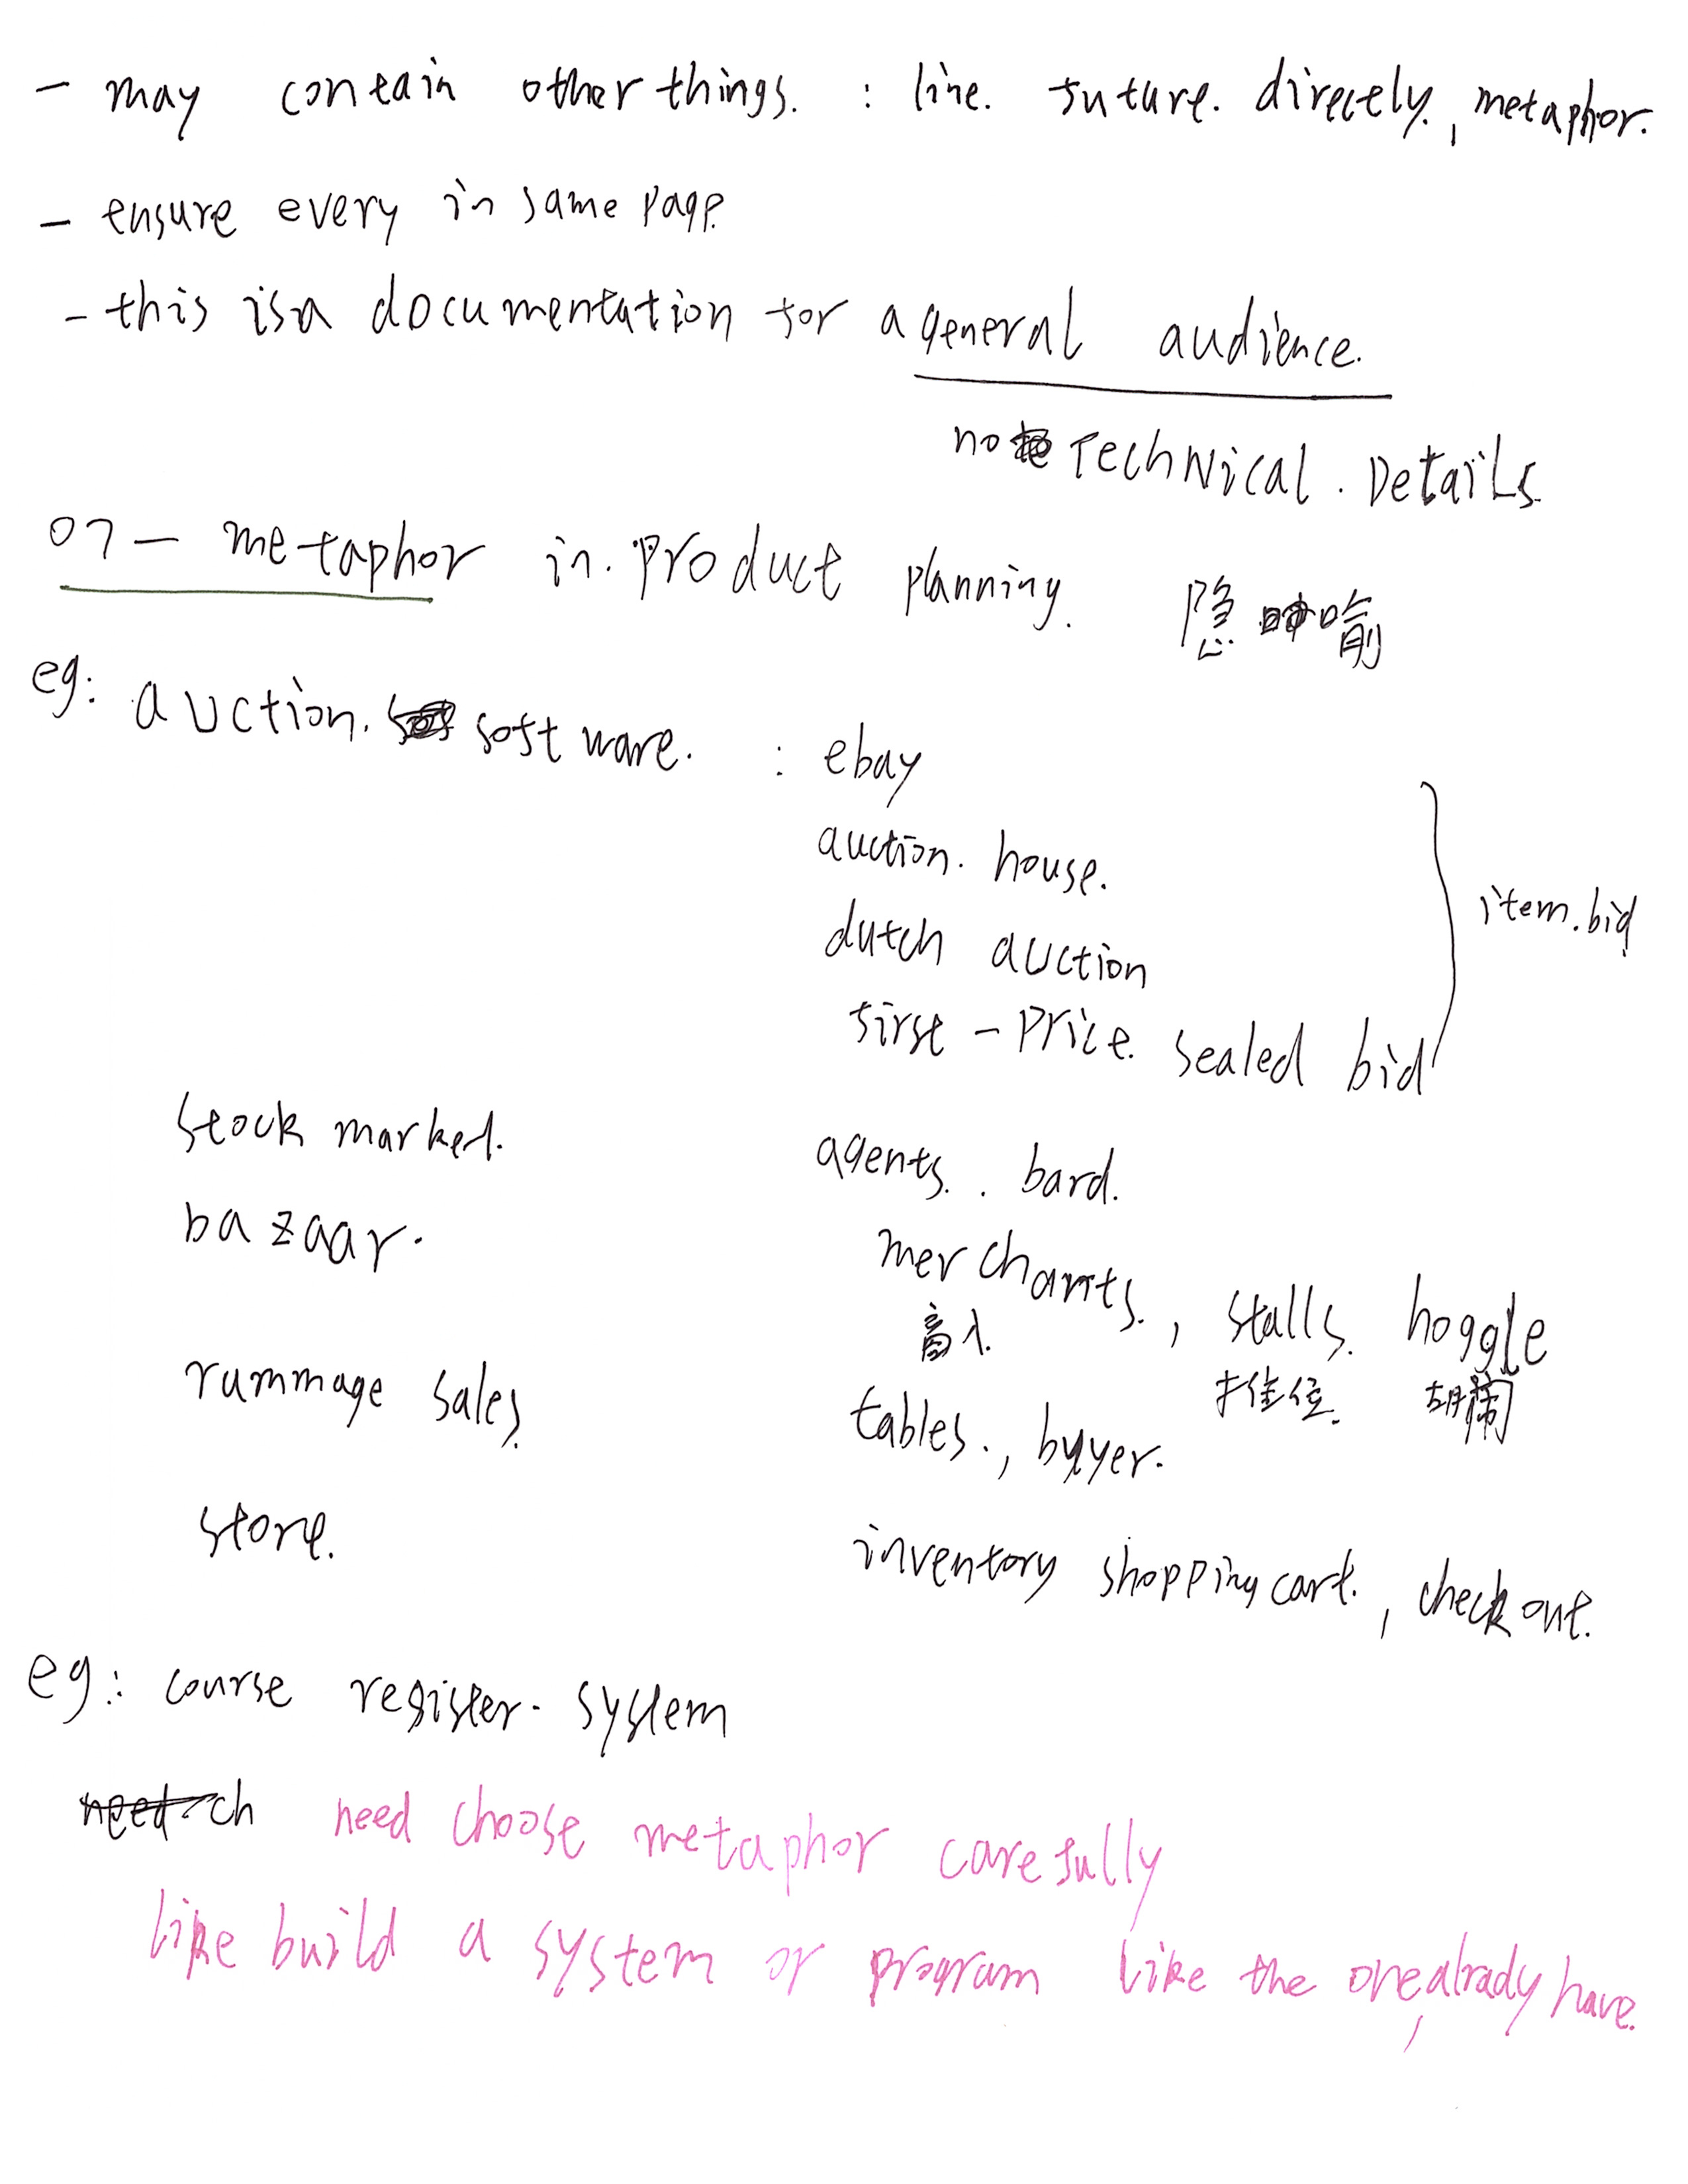 - may contain other things. : line. future. directely., metaphor.
- ensure every in same page.
- this is a documentation for a general audience.
no Technical. Details
07 - metaphor in. product planning. 隐喻
eg: auction. software. : ebay
auction. house.
dutch auction
item.bid
first - price. sealed bid
stock marked. agents. . bard.
bazaar. merchants., stalls. hoggle
胡闹
rummage sales. tables., buyer.
store. inventory shopping cart., check out.
eg: course register. system
need ch need choose metaphor carefully
like build a system or program like the one, alrady have.